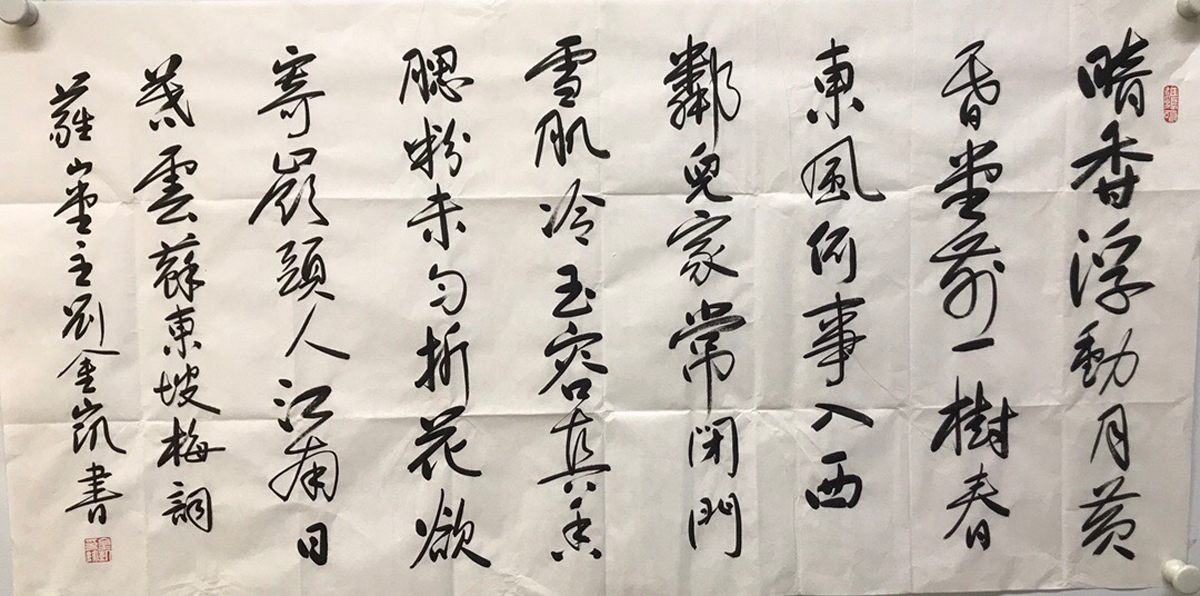 暗香浮動月黃
昏堂前一樹春
東風何事入西
鄰兒家常閉門
雪肌冷玉容真香
腮粉未勻折花欲
寄嶺頭人江南日
暮雲蘇東坡梅詞
蘿山堂主劉金凱書